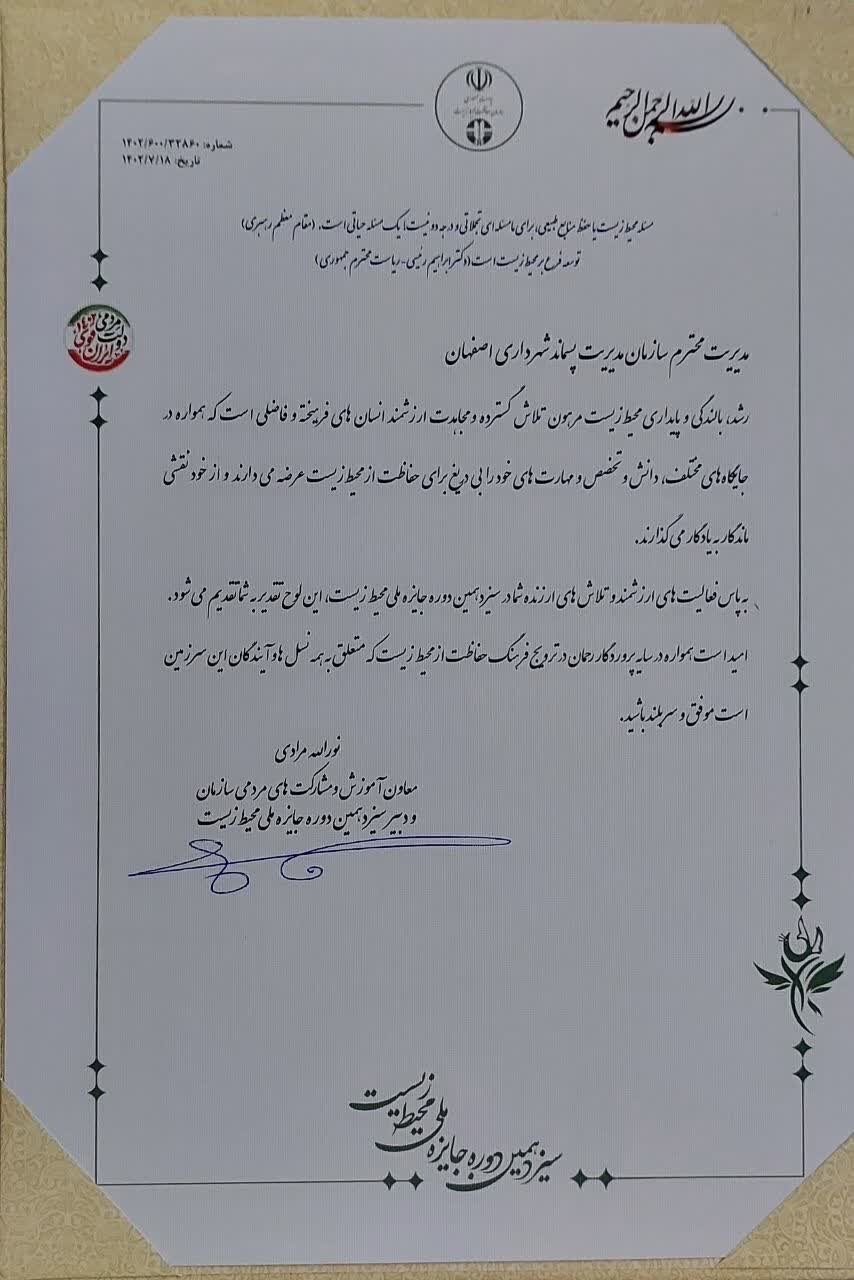 بسم الله الرحمن الرحیم
ریاست جمهوری
سازمان حفاظت محیط زیست
شماره: ۱۴۰۲/۶۰۰/۳۲۸۶۰
تاریخ: ۱۴۰۲/۷/۱۸
مسئله محیط زیست یا حفظ منابع طبیعی، برای ما مسئله ای تجملاتی و درجه دو نیست؛ یک مسئله حیاتی است. (مقام معظم رهبری)
توسعه فرع بر محیط زیست است (دکتر ابراهیم رئیسی-ریاست محترم جمهوری)
دولت مردمی ایران قوی
مدیریت محترم سازمان مدیریت پسماند شهرداری اصفهان
رشد، بالندگی و پایداری محیط زیست مرهون تلاش گسترده و مجاهدت ارزشمند انسان های فرهیخته و فاضلی است که همواره در
جایگاه های مختلف، دانش و تخصص و مهارت های خود را بی دریغ برای حفاظت از محیط زیست عرضه می دارند و از خود نقشی
ماندگار به یادگار می گذارند.
به پاس فعالیت های ارزشمند و تلاش های ارزنده شما در سیزدهمین دوره جایزه ملی محیط زیست، این لوح تقدیر به شما تقدیم می شود.
امید است همواره در سایه پروردگار رحمان در ترویج فرهنگ حفاظت از محیط زیست که متعلق به همه نسل ها و آیندگان این سرزمین
است موفق و سربلند باشید.
نورالله مرادی
معاون آموزش و مشارکت های مردمی سازمان
و دبیر سیزدهمین دوره جایزه ملی محیط زیست
سیزدهمین دوره جایزه ملی محیط زیست